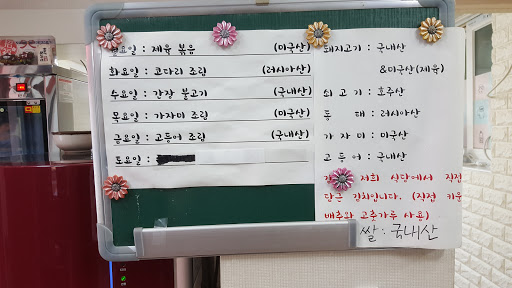 요일 : 제육 볶음 (미국산)
화요일 : 코다리 조림 (러시아산)
수요일 : 간장 불고기 (국내산)
목요일 : 가자미 조림 (미국산)
금요일 : 고등어 조림 (국내산)
토요일 :
돼지고기 : 국내산
&미국산(제육)
쇠고기 : 호주산
동 태 : 러시아산
가자미 : 미국산
고등어 : 국내산
저희 식당에서 직접
담근 김치입니다. (직접 키운
배추와 고춧가루 사용)
쌀 : 국내산